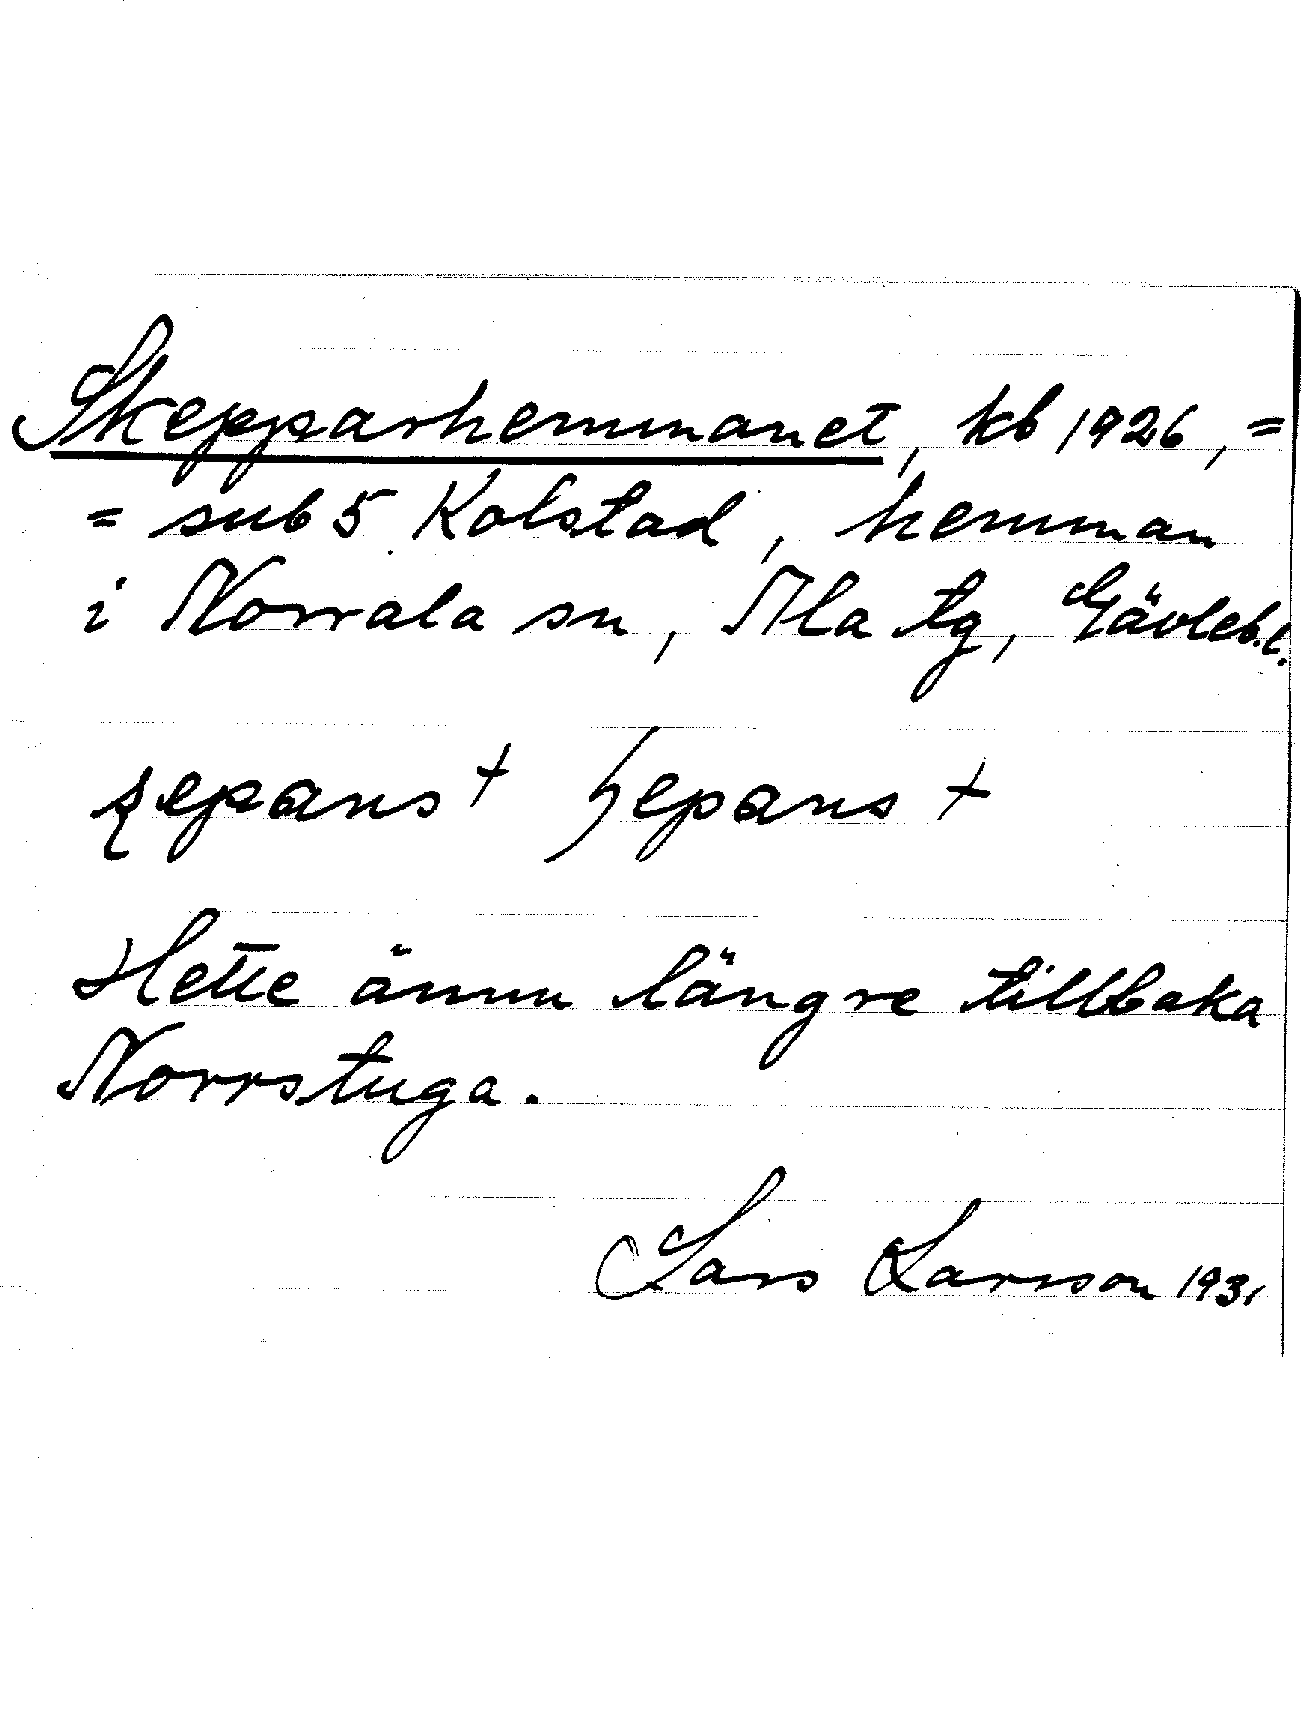 Skepparhemmanet, kb 1926, =
= sub 5 Kolstad, hemman
i Norrala sn, Nla tg, Gävleb.l.
ʂepans + ʃepans +
Hette ännu längre tillbaka
Norrstuga.
Lars Larsson 1931